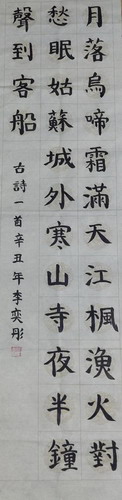 月落烏啼霜滿天江楓漁火對
愁眠姑蘇城外寒山寺夜半鐘
聲到客船
古詩一首辛丑年李奕彤